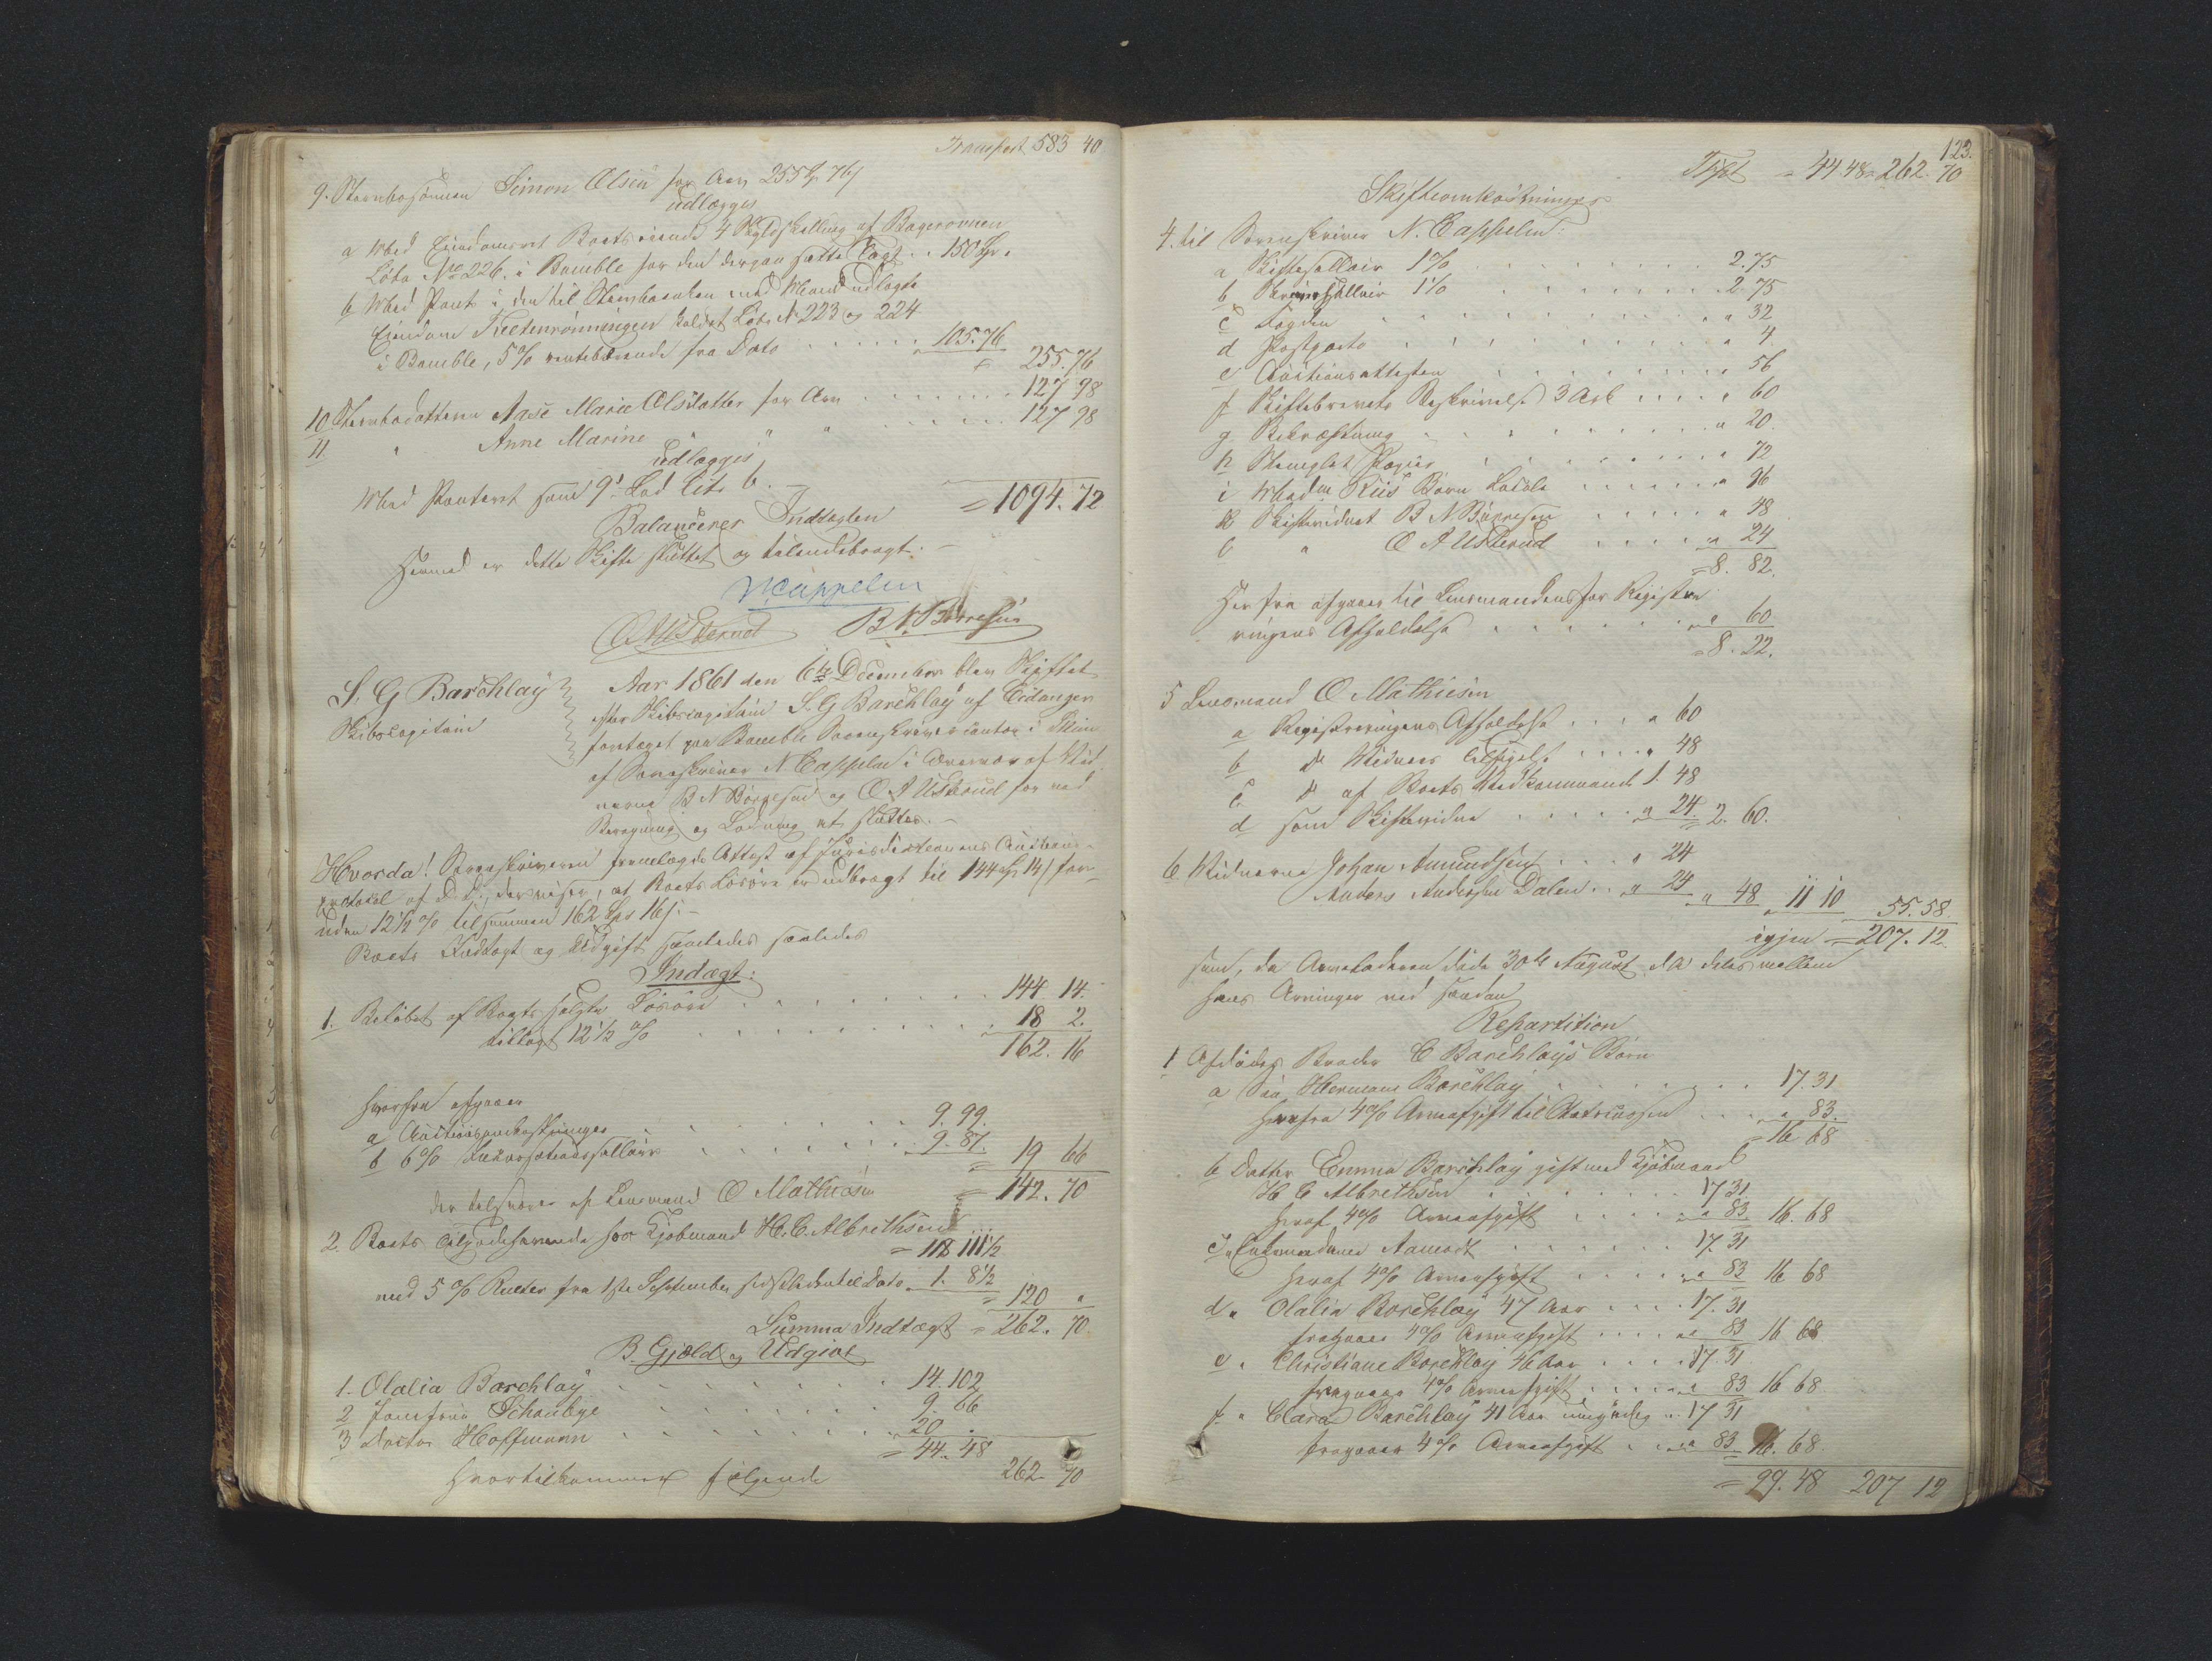 Transport 583 40
9. Sterbosønnen Simon Olsen for Arv 255 Sp 76 ſ
udlægges
a Med Eiendomsret Boets eiende 4 Skyldskilling af Bagerovnen
Løbe No 226. i Bamble for den derpaa satte Taxt . . 150 Sp.
b Med Pant i den til Sterboenken med Mand udlagte
Eiendom Feltenrønningen kaldet Løbe No 223 og 224
i Bamble, 5% rentebærende fra Dato . . . . 105.76
= 255.76
10 Sterbodatteren Aase Marie Olsdatter for Arv . . . . . 127 98
11 " Anne Marine " " . . . . 127 98
udlægges
Med Panteret som 9de Lod Litr b.
= 1094.72
Balancerer Indtægten
Hermed er dette Skifte sluttet og tilendebragt.
N Cappelen
O A Usterud B N Børresen
S. G Barchlay
Skibscapitain
Aar 1861 den 6te December blev Skiftet
efter Skibscapitain S. G Barchlay af Eidanger
foretaget paa Bamble Sorenskrivercontor i Skien
af Sorenskriver N. Cappelen i Overvær af Vid
nerne B N Børresen og O A Usterud for ved
Beregning og Lodning at sluttes. -
Hvorda! Sorenskriveren fremlagde Attest af Jurisdictionens Auctions-
protocol af D. D., der viser, at Boets Løsøre er udbragt til 144 Sp 14 ſ for-
uden 12½ % tilsammen 162 Sp 16 ſ. -
Boets Indtægt og Udgift saaledes
Indtægt:
1. Beløbet af Boets solgte Løsøre . . . . . . 144 14.
tillagt 12½ % . . . . . . 18 2.
162. 16
hvorfra afgaaer
a Auctionsomkostninger . . . . . 9. 99.
b 6% Incassationssallair . . . . . 9. 87.
= 19 66
der tilsvares af Lensmand O Mathiesen = 142. 70
2. Boets Tilgodehavende hos Kjøbmand H. C. Albrethsen
= 118 111½
med 5% Renter fra 1ste September sidstleden til Dato 1. 8½
= 120 "
Summa Indtægt = 262. 70
B. Gjæld og Udgivt
1. Olalia Barchlay . . . . . . 14. 102
2 Jomfru Schanbye . . . . . . 9. 66
3 Doctor Hoffmann . . . . . . 20
= 44. 48
hvortilkommer følgende 262. 70
123.
Tspt = 44.48 = 262. 70
Skifteomkostninger
4. til Sorenskriver N. Cappelen:
a Skiftesallair 1% . . . . . . 2. 75
b Skriversallair 1% . . . . . . 2. 75
c Fogden . . . . . . " 32
d Postporto . . . . . . " 4.
e Auctionsattesten . . . . . . " 56
f Skiftebrevets Beskrivelse 3 Ark . . . . " 60
g Bekræftning . . . . . . " 20.
h Stemplet Papir . . . . . . " 72
i Mad. Riis Børn Locale . . . . . " 96
k Skiftevidnet B N Børresen . . . . " 48
l " O A Usterud . . . . " 24
= 8. 82.
Her fra afgaaer til Lensmanden for Registre
ringens Afholdelse . . . . . " 60
= 8. 22.
5 Lensmand O Mathiesen
a Registreringens Afholdelse . . . " 60
b Do Vidners Tilsigelse . . . . " 48
c Do af Boets Vedkommende 1. 48
d som Skiftevidne . . . . " 24. = 2. 60.
6 Vidnerne Johan Amundsen . . . " 24
Anders Andersen Dalen . . " 24 " 48 11 10 55. 58
igjen = 207. 12.
som, da Arveladeren døde 30te August d. A. deles mellem
hans Arvinger ved saadan
Repartition
1 Afdødes Broder C Barchlays Børn
a Søn Hermann Barchlay . . . . . 17. 31
herfra 4% Arveafgift til Statscassen . . . " 83.
= 16 68
b Datter Emma Barchlay gift med Kjøbmand
H C Albrethsen . . . . . . 17 31
heraf 4% Arveafgift . . . . " 83 16. 68
c " Aamodt . . . . . . 17. 31
heraf 4% Arveafgift . . . . " 83 16 68
d " Olalia Barchlay 47 Aar . . . . 17. 31
fragaaer 4% Arveafgift . . . . " 83 16 68
e " Christiane Barchlay 46 Aar . . . . 17. 31
fragaaer 4% Arveafgift . . . . " 83 16 68
f " Clara Barchlay 41 Aar umyndig . . 17 31
fragaaer 4% Arveafgift . . . " 83 16. 68.
= 99. 48 207 12